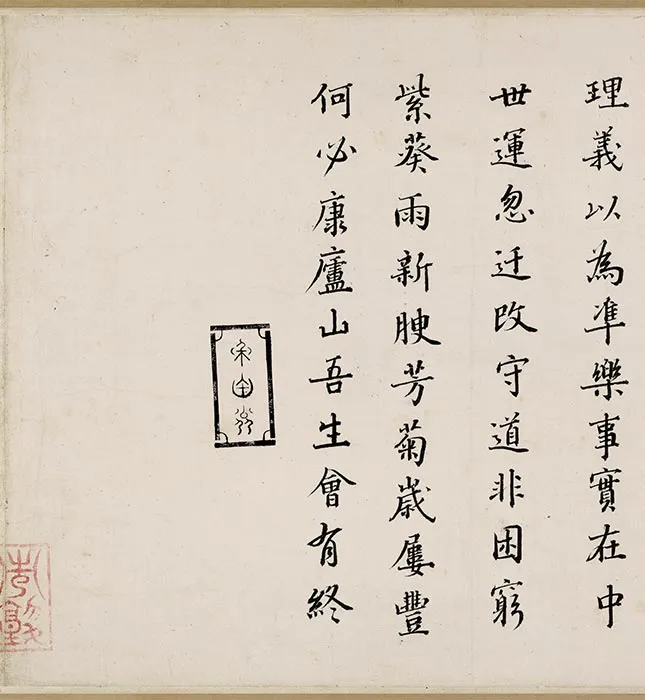 理義以為準樂事實在中
世運忽迁改守道非困窮
紫葵雨新腴芳菊歲屢豐
何必康廬山吾生會有終